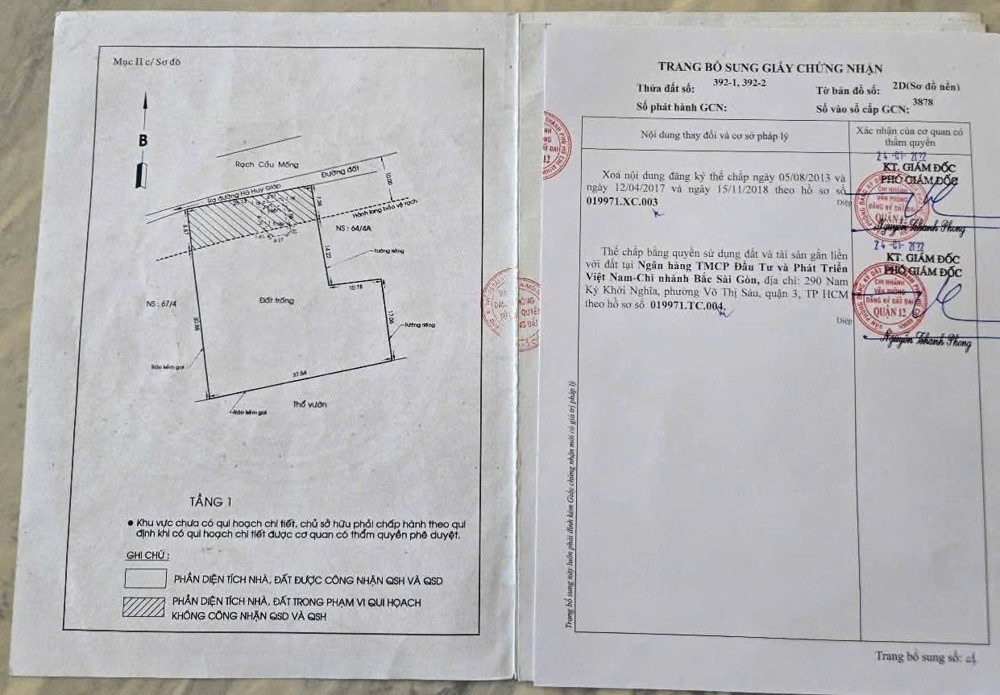 Mục II c/ Sơ đồ
B
Rạch Cầu Mống
Đường đất
Ra đường Hà Huy Giáp
10.00
Hành lang bảo vệ rạch
NS : 64/4A
Tường riêng
14.22
10.78
NS : 67/4
Đất trống
17.06
Tường riêng
Rào kẽm gai
37.54
Rào kẽm gai
Thổ vườn
TẦNG 1
• Khu vực chưa có qui hoạch chi tiết, chủ sở hữu phải chấp hành theo qui
định khi có qui hoạch chi tiết được cơ quan có thẩm quyền phê duyệt.
GHI CHÚ :
PHẦN DIỆN TÍCH NHÀ, ĐẤT ĐƯỢC CÔNG NHẬN QSH VÀ QSD
PHẦN DIỆN TÍCH NHÀ, ĐẤT TRONG PHẠM VI QUI HOẠCH
KHÔNG CÔNG NHẬN QSD VÀ QSH
TRANG BỔ SUNG GIẤY CHỨNG NHẬN
Thửa đất số: 392-1, 392-2 Tờ bản đồ số: 2D(Sơ đồ nền)
Số phát hành GCN: Số vào sổ cấp GCN: 3878
Nội dung thay đổi và cơ sở pháp lý
Xác nhận của cơ quan có
thẩm quyền
Xoá nội dung đăng ký thế chấp ngày 05/08/2013 và
ngày 12/04/2017 và ngày 15/11/2018 theo hồ sơ số
019971.XC.003
Diệp
KT. GIÁM ĐỐC
PHÓ GIÁM ĐỐC
CHI NHÁNH
VĂN PHÒNG
ĐĂNG KÝ ĐẤT ĐAI
QUẬN 12
Nguyễn Thanh Phong
Thế chấp bằng quyền sử dụng đất và tài sản gắn liền
với đất tại Ngân hàng TMCP Đầu Tư và Phát Triển
Việt Nam-Chi nhánh Bắc Sài Gòn, địa chỉ: 290 Nam
Kỳ Khởi Nghĩa, phường Võ Thị Sáu, quận 3, TP HCM
theo hồ sơ số 019971.TC.004.
Diệp
KT. GIÁM ĐỐC
PHÓ GIÁM ĐỐC
CHI NHÁNH
VĂN PHÒNG
ĐĂNG KÝ ĐẤT ĐAI
QUẬN 12
Nguyễn Thanh Phong
Trang bổ sung này luôn phải đính kèm Giấy chứng nhận mới có giá trị pháp lý
Trang bổ sung số: